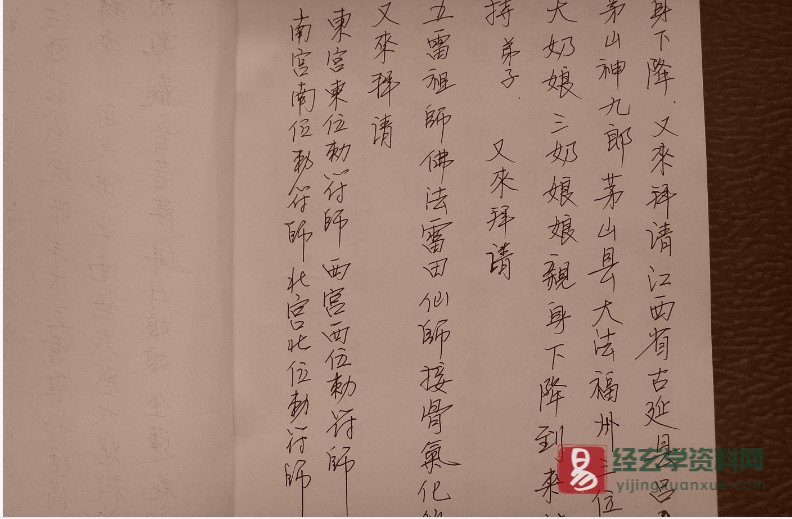 身下降.又來拜请江西省古延县吕
茅山神九郎 茅山县大法福州三位
大奶娘 三奶娘娘親身下降到来
持弟子. 又來拜请
五雷祖師佛法雷田仙師接骨氣化
又來拜请
東宮東位勅符師 西宮西位勅符師
南宮南位勅符師 北宮北位勅符師
易
经玄学资料网
yijingxuanxue.com